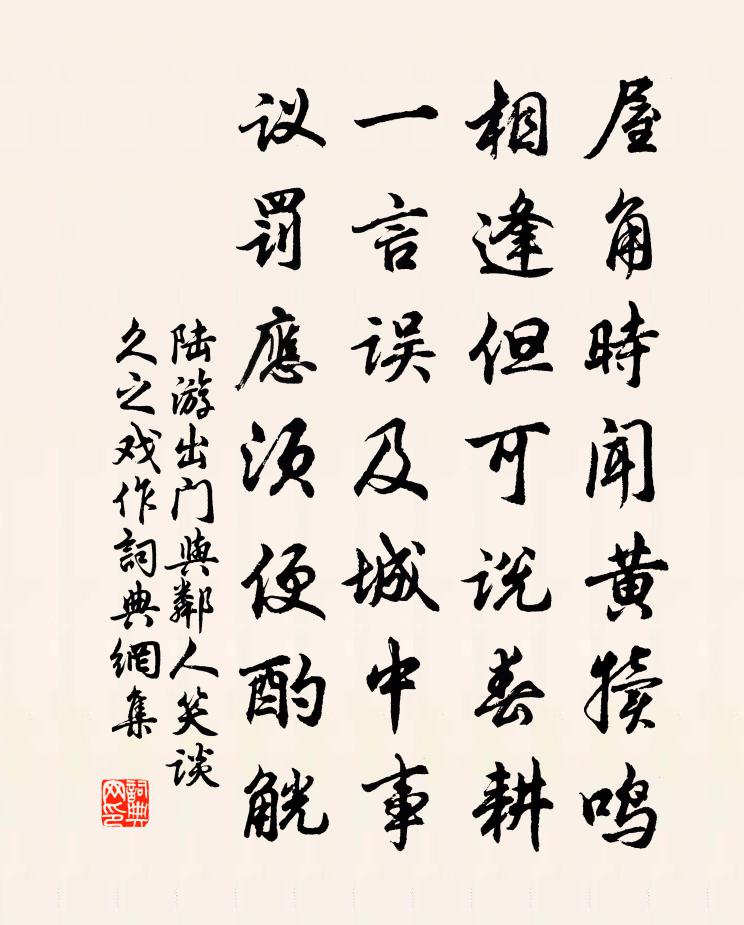 屋角時闻黄犊鸣
相逢但可说春耕
一言误及城中事
议罚應须便酌觥
陆游出门與鄰人笑谈
久之戏作詞典網集
詞典网印